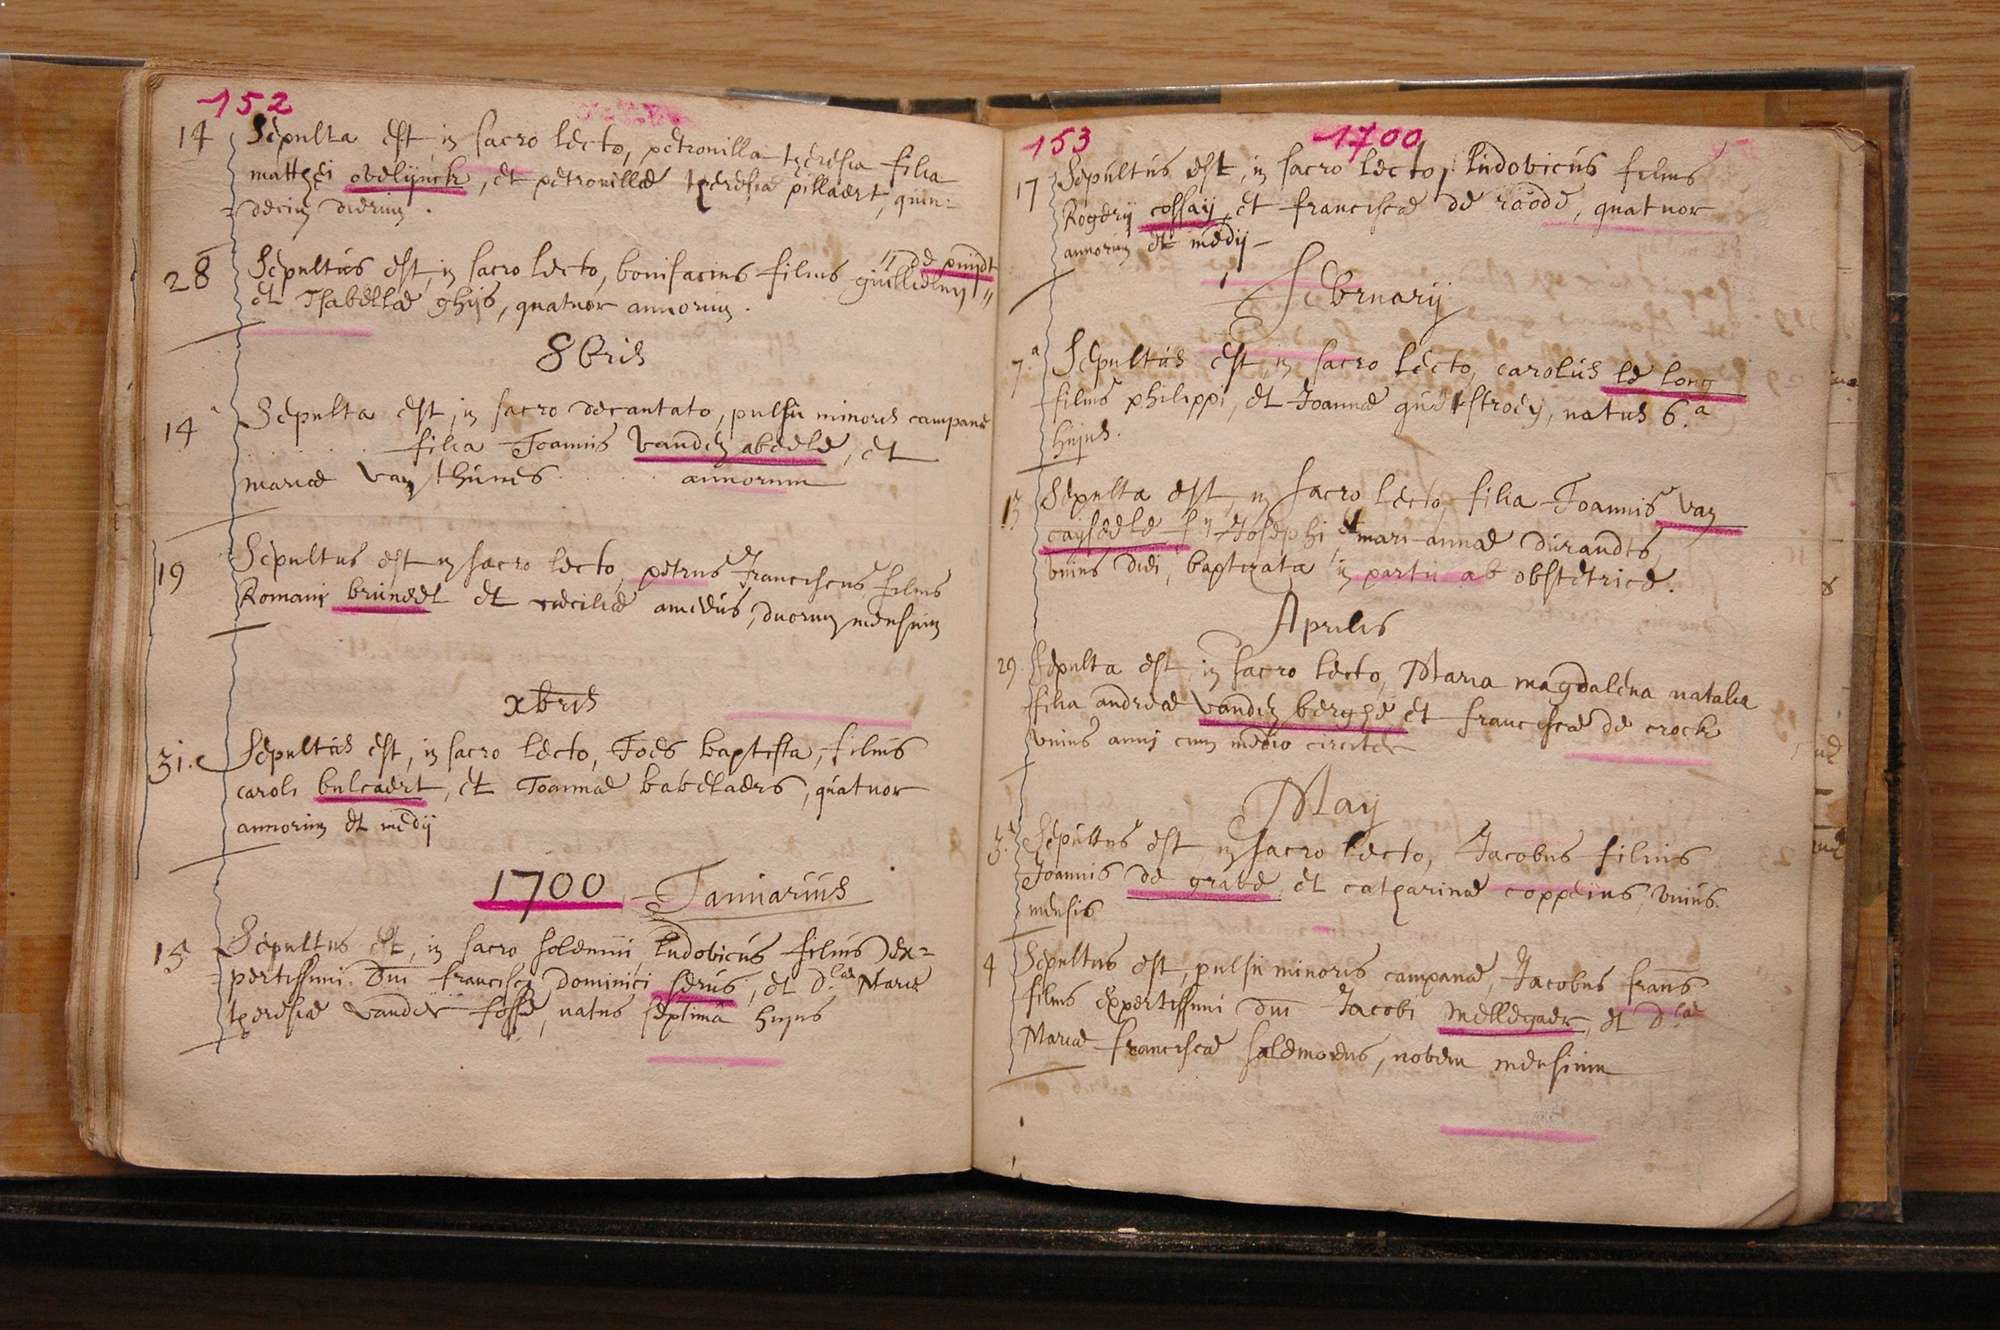 152
14 Sepulta est in sacro lecto, petronilla theresia filia
matthei ovelijnck, et petronillæ theresiæ pillaert, quin=
decim dierum.
28 Sepultus est in sacro lecto, bonifacius filius guillielmij // de puijdt //
et Isabellæ ghijs, quatuor annorum.
8bris
14 Sepulta est in sacro decantato, pulsu minoris campanæ
. . . . . . filia Joannis vanden abeele, et
mariæ van thunes . . . . . annorum
19 Sepultus est in sacro lecto, petrus franciscus filius
Romani bruneel et cæciliæ ameeus, duorum mensium
xbris
31.a Sepultus est, in sacro lecto, Joes baptista, filius
caroli bulcaert, et Joannæ babelaers, quatuor
annorum et medij
1700 Januarius
15 Sepultus est, in sacro solemni ludovicus filius ex=
pertissimi Dni francisci Dominici serus, et D.læ Mariæ
theresiæ vander fosse, natus septima hujus
153 1700
17 Sepultus est, in sacro lecto, ludovicus filius
Rogerij cossaij, et franciscæ de roode, quatuor
annorum et medij
februarij
7.a Sepultus est, in sacro lecto, carolus le long
filius philippi, et Joannæ questroeij, natus 6.a
hujus.
13 Sepulta est, in sacro lecto filia Joannis van
caijseele fij Josephi et mari-annæ durandts,
unius diei, baptizata in partu ab obstetrice.
Aprilis
29 Sepulta est in sacro lecto, Maria magdalena natalia
filia andreæ vanden berghe et franciscæ de crock
unius anni cum medio circiter
Maij
3.a Sepultus est in sacro lecto, Jacobus filius
Joannis de grave, et catharinæ coppeius, unius
mensis
4 Sepultus est, pulsu minoris campanæ, Jacobus frans
filius expertissimi Dni Jacobi mellegaer, et D.læ
Mariæ franciscæ salemoeus, novem mensium